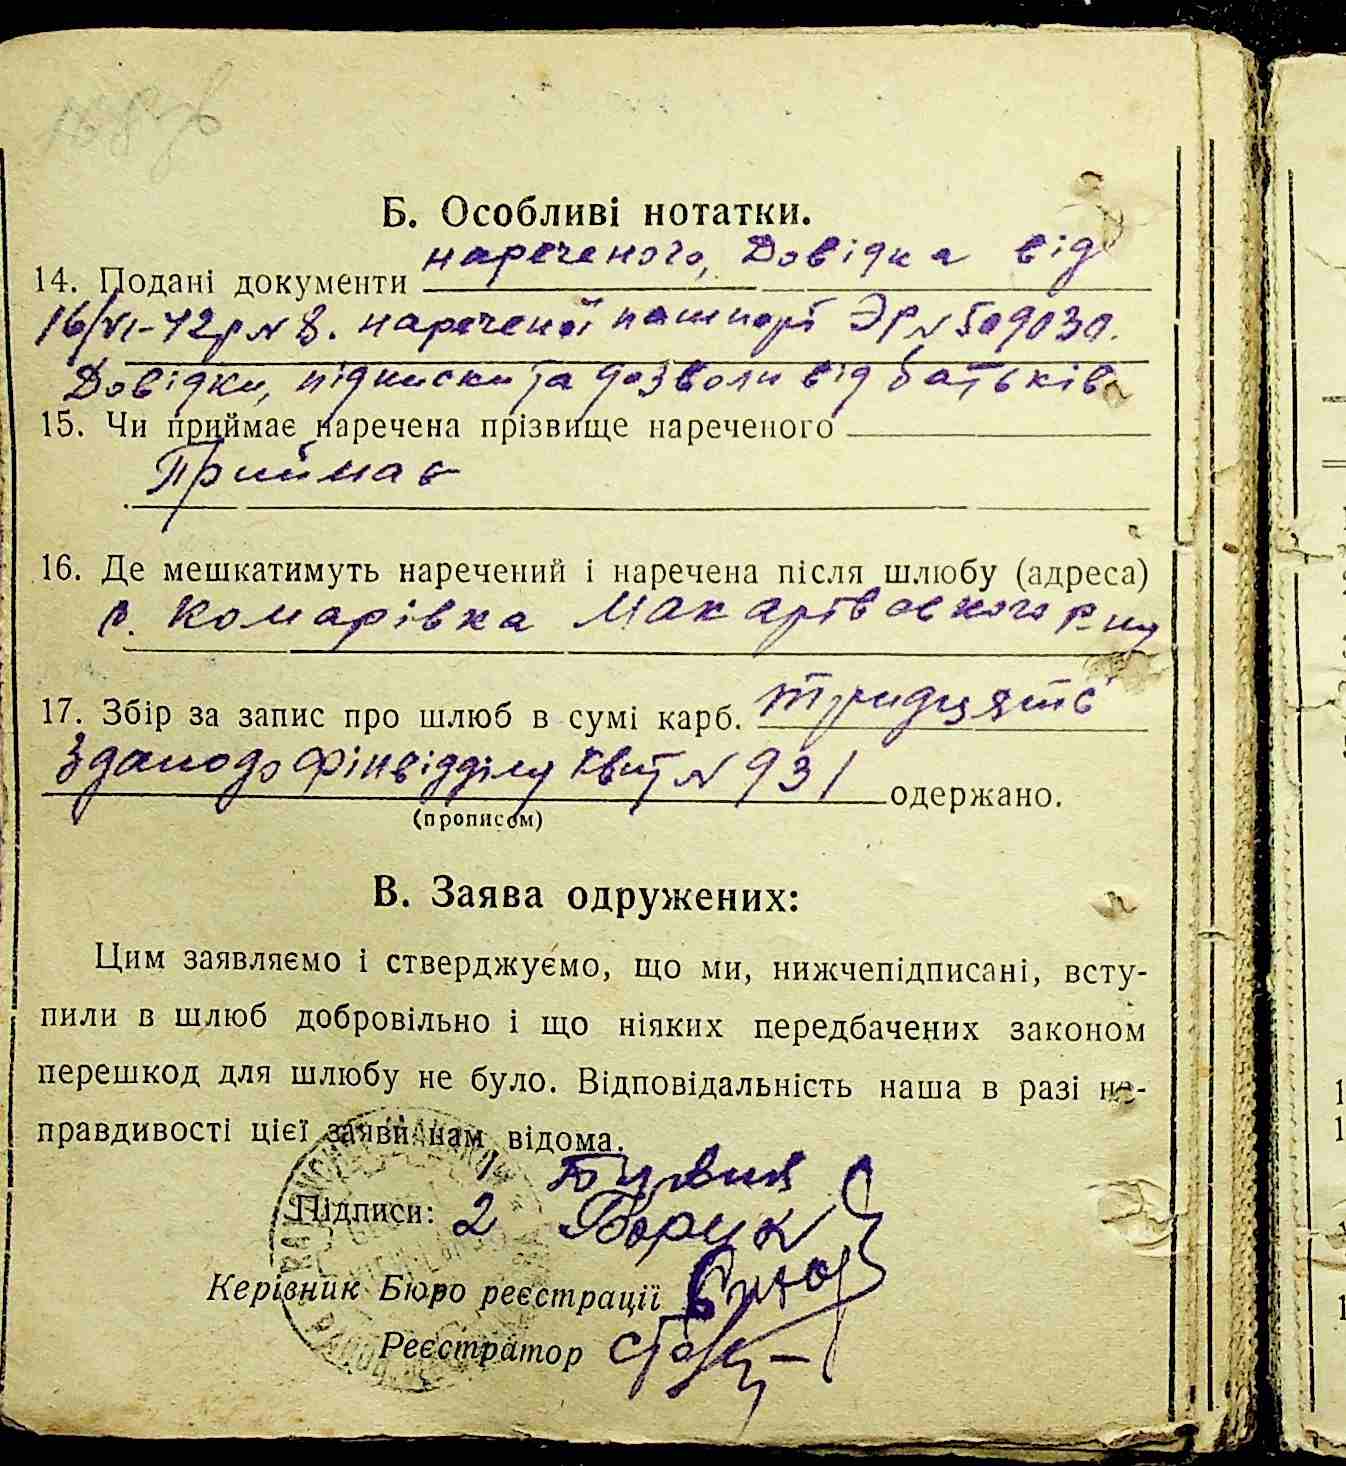 Б. Особливі нотатки.
14. Подані документи нареченого, Довідка від
16/VI-42р № 8. нареченої пашпорт ЭР № 509030.
Довідки, підписки та дозволи від батьків
15. Чи приймає наречена прізвище нареченого
Приймає
16. Де мешкатимуть наречений і наречена після шлюбу (адреса)
с. Комарівка Макарівського р-ну
17. Збір за запис про шлюб в сумі карб. тридцять
здано до фінвідділу квит № 931 одержано.
(прописом)
В. Заява одружених:
Цим заявляємо і стверджуємо, що ми, нижчепідписані, всту-
пили в шлюб добровільно і що ніяких передбачених законом
перешкод для шлюбу не було. Відповідальність наша в разі не-
правдивості цієї заяви нам відома.
1
Підписи: 2
Керівник Бюро реєстрації
Реєстратор